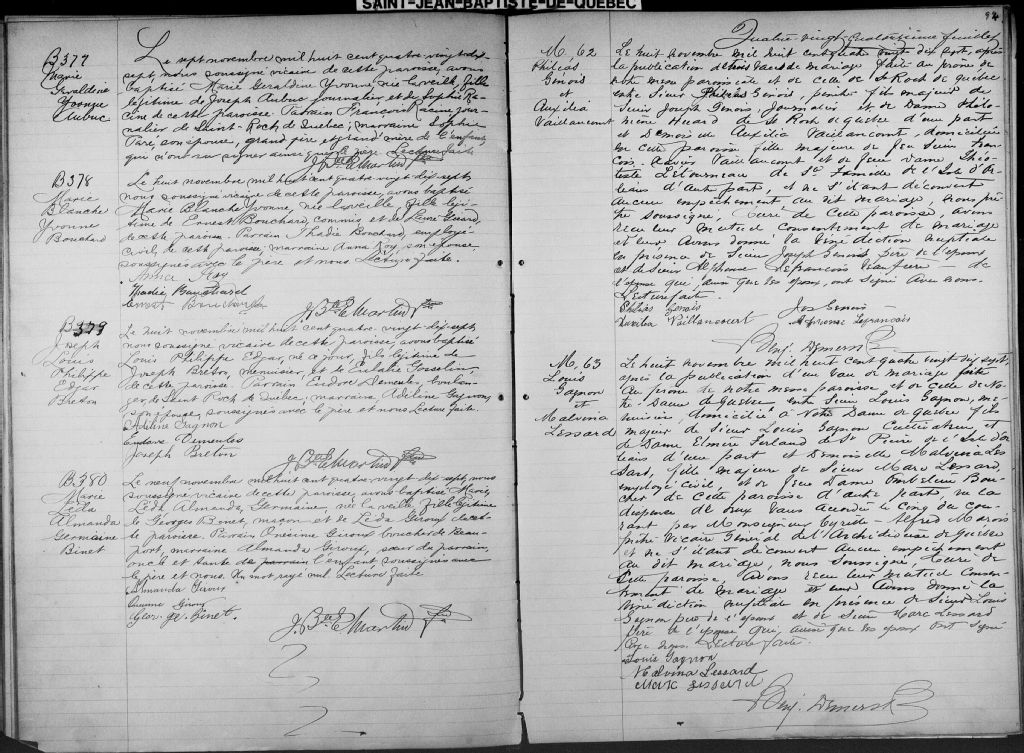 SAINT-JEAN-BAPTISTE-DE-QUEBEC
B377
Marie
Geraldine
Yvonne
Aubuc
Le sept novembre mil huit cent quatre vingt dix
sept, nous soussigné vicaire de cette paroisse, avons
baptisé Marie Geraldine Yvonne, née la veille, fille
légitime de Joseph Aubuc journalier et de Sophie Ra
cine de cette paroisse. Parrain François Racine jour
nalier de Saint-Roch de Québec; marraine Sophie
Paré, son épouse, grand père et grand'mère de l'enfant,
qui n'ont su signer ainsi que le père. Lecture faite
J. Bte E Martin Ptre
B378
Marie
Blanche
Yvonne
Bouchard
Le huit novembre mil huit cent quatre vingt dix sept
nous soussigné vicaire de cette paroisse, avons baptisé
Marie Blanche Yvonne, née la veille, fille légi
time de Ernest Bouchard, commis et de
de cette paroisse. Parrain Thadée Bouchard, employé
civil, de cette paroisse, marraine Anna Roy, son épouse
soussignés avec le père et nous. Lecture faite.
Annie Roy
Thadée Bouchard
Ernest Bouchard
J. Bte E Martin Ptre
B379
Joseph
Louis
Philippe
Edgar
Breton
Le huit novembre mil huit cent quatre vingt dix sept
nous soussigné vicaire de cette paroisse, avons baptisé
Louis Philippe Edgar, né ce jour, fils légitime de
Joseph Breton, menuisier, et de Eulalie Gosselin,
de cette paroisse. Parrain Demeules, boulan
ger, de Saint Roch de Québec, marraine Adeline Gagnon,
son épouse, soussignés avec le père et nous. Lecture faite.
Adeline Gagnon
Demeules
Joseph Breton
J. Bte E Martin Ptre
B380
Marie
Léda
Almanda
Germaine
Binet
Le neuf novembre mil huit cent quatre vingt dix sept, nous
soussigné vicaire de cette paroisse, avons baptisé Marie,
Léda, Almanda, Germaine, née la veille, fille légitime
de Georges Binet, maçon et de Léda Giroux de cet
te paroisse. Parrain Onésime Giroux boucher de Beau
port, marraine Almanda Giroux, sœur du parrain,
oncle et tante du parrain l'enfant soussignés avec
le père et nous. Un mot rayé nul Lecture faite
Almanda Giroux
Onésime Giroux
Geor. ge. Binet.
J. Bte E Martin Ptre
94
Quatre vingt quatorzième feuillet
M. 62
Philéas
Genois
et
Auxilia
Vaillancourt
Le huit novembre mil huit cent quatre vingt dix sept, après
la publication de trois bans de mariage faite au prône de
notre messe paroissiale et de celle de St Roch de Québec
entre Sieur Philéas Genois, peintre fils majeur de
Sieur Joseph Genois, Journalier et de Dame Philo
mène Huard de St Roch de Québec d'une part
et Demoiselle Auxilia Vaillancourt, domiciliée
en cette paroisse fille majeure de feu Sieur Fran
çois Xavier Vaillancourt et de feue Dame Théo
tiste Létourneau de Ste Famille de l'Isle d'Or
léans d'autre part, et ne s'étant découvert
aucun empêchement au dit mariage, nous prê
tre soussigné, Curé de cette paroisse, avons
reçu leur mutuel consentement de mariage
et leur avons donné la bénédiction nuptiale
en présence de Sieur Joseph Genois père de l'époux
et de Sieur Alphonse Lefrancois beau frère de
l'épouse qui, ainsi que les époux, ont signé avec nous.
Lecture faite.
Philéas Genois
Auxilia Vaillancourt
Jos Genois
Alphonse Lefrancois
Benj. Demers Ptre
M. 63
Louis
Gagnon
et
Malvina
Lessard
Le huit novembre mil huit cent quatre vingt dix sept
après la publication d'un ban de mariage faite
au prône de notre messe paroissiale et de celle de No
tre-Dame de Québec entre Sieur Louis Gagnon, me
nuisier, domicilié à Notre Dame de Québec fils
majeur de Sieur Louis Gagnon Cultivateur et
de Dame Elmire Ferland de St Pierre de l'Isle d'Or
léans d'une part et Demoiselle Malvina Les
sard, fille mineure de Sieur Marc Lessard,
employé civil, et de feue Dame Ombéline Bou
cher de cette paroisse d'autre part; vu la
dispense de deux bans accordée le cinq du cou
rant par Monseigneur Cyrille-Alfred Marois
prêtre Vicaire Général de l'Archidiocèse de Québec
et ne s'étant découvert aucun empêchement
au dit mariage, nous soussigné, Curé de
cette paroisse, avons reçu leur mutuel consen
tement de mariage et leur avons donné la
bénédiction nuptiale en présence de Sieur Louis
Gagnon père de l'époux et de Sieur Marc Lessard
père de l'épouse qui, ainsi que les époux ont signé
avec nous. Lecture faite.
Louis Gagnon
Malvina Lessard
Mark Lessard
Benj. Demers Ptre